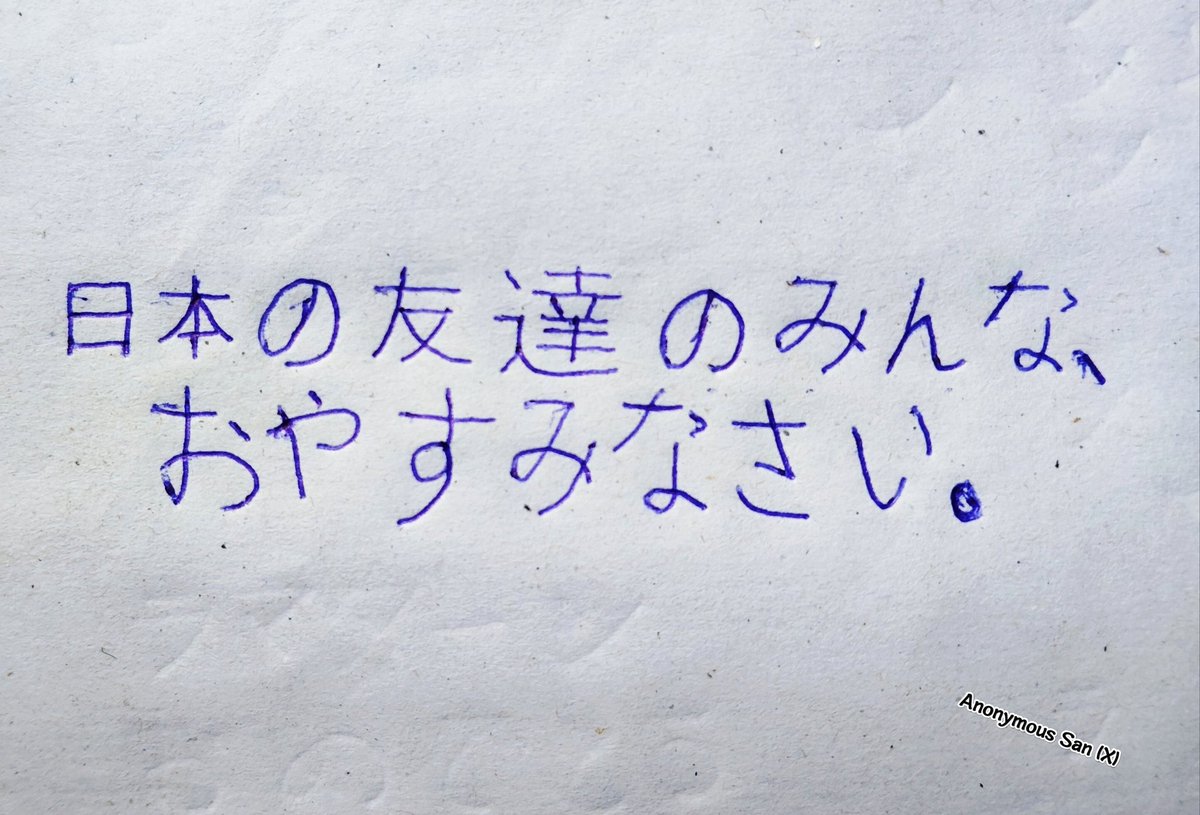 日本の友達のみんな、
おやすみなさい。
Anonymous San (X)